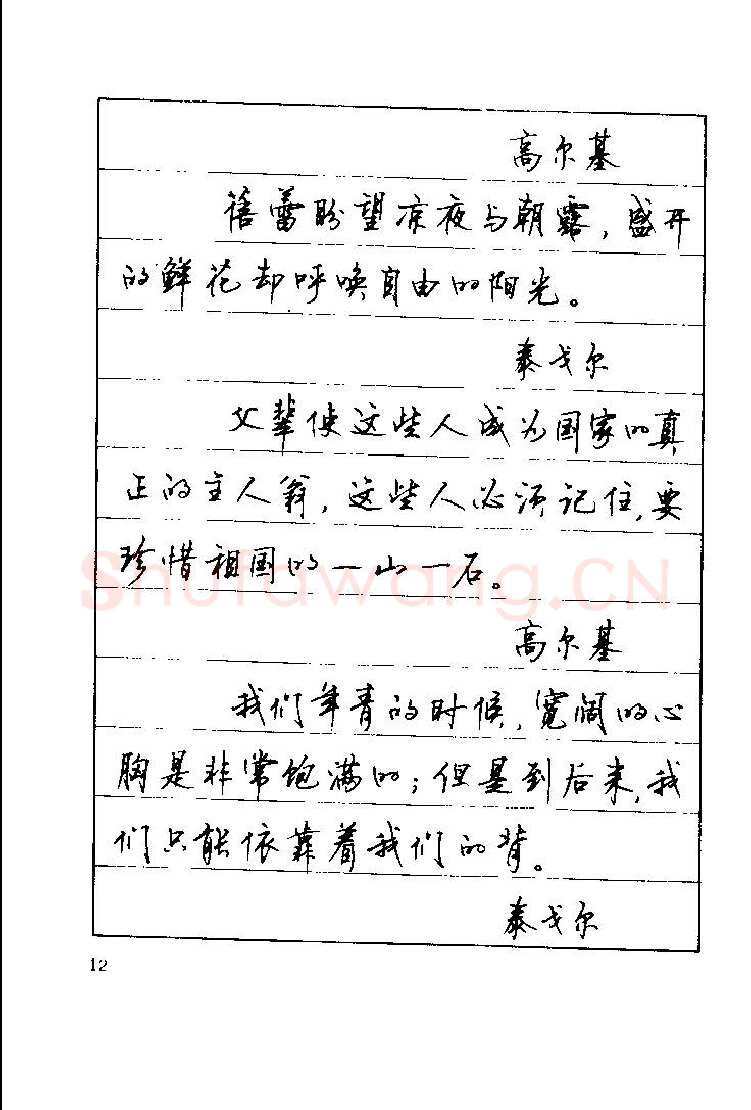 高尔基
蓓蕾盼望凉夜与朝露，盛开
的鲜花却呼唤自由的阳光。
泰戈尔
父辈使这些人成为国家的真
正的主人翁，这些人必须记住，要
珍惜祖国的一山一石。
Shufawang.CN
高尔基
我们年青的时候，宽阔的心
胸是非常饱满的；但是到后来，我
们只能依靠着我们的背。
泰戈尔
12